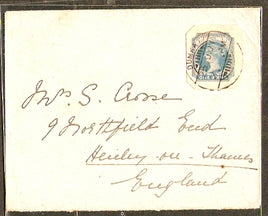 Mrs S. Crosse
9 Northfield End
Henley-on-Thames
England